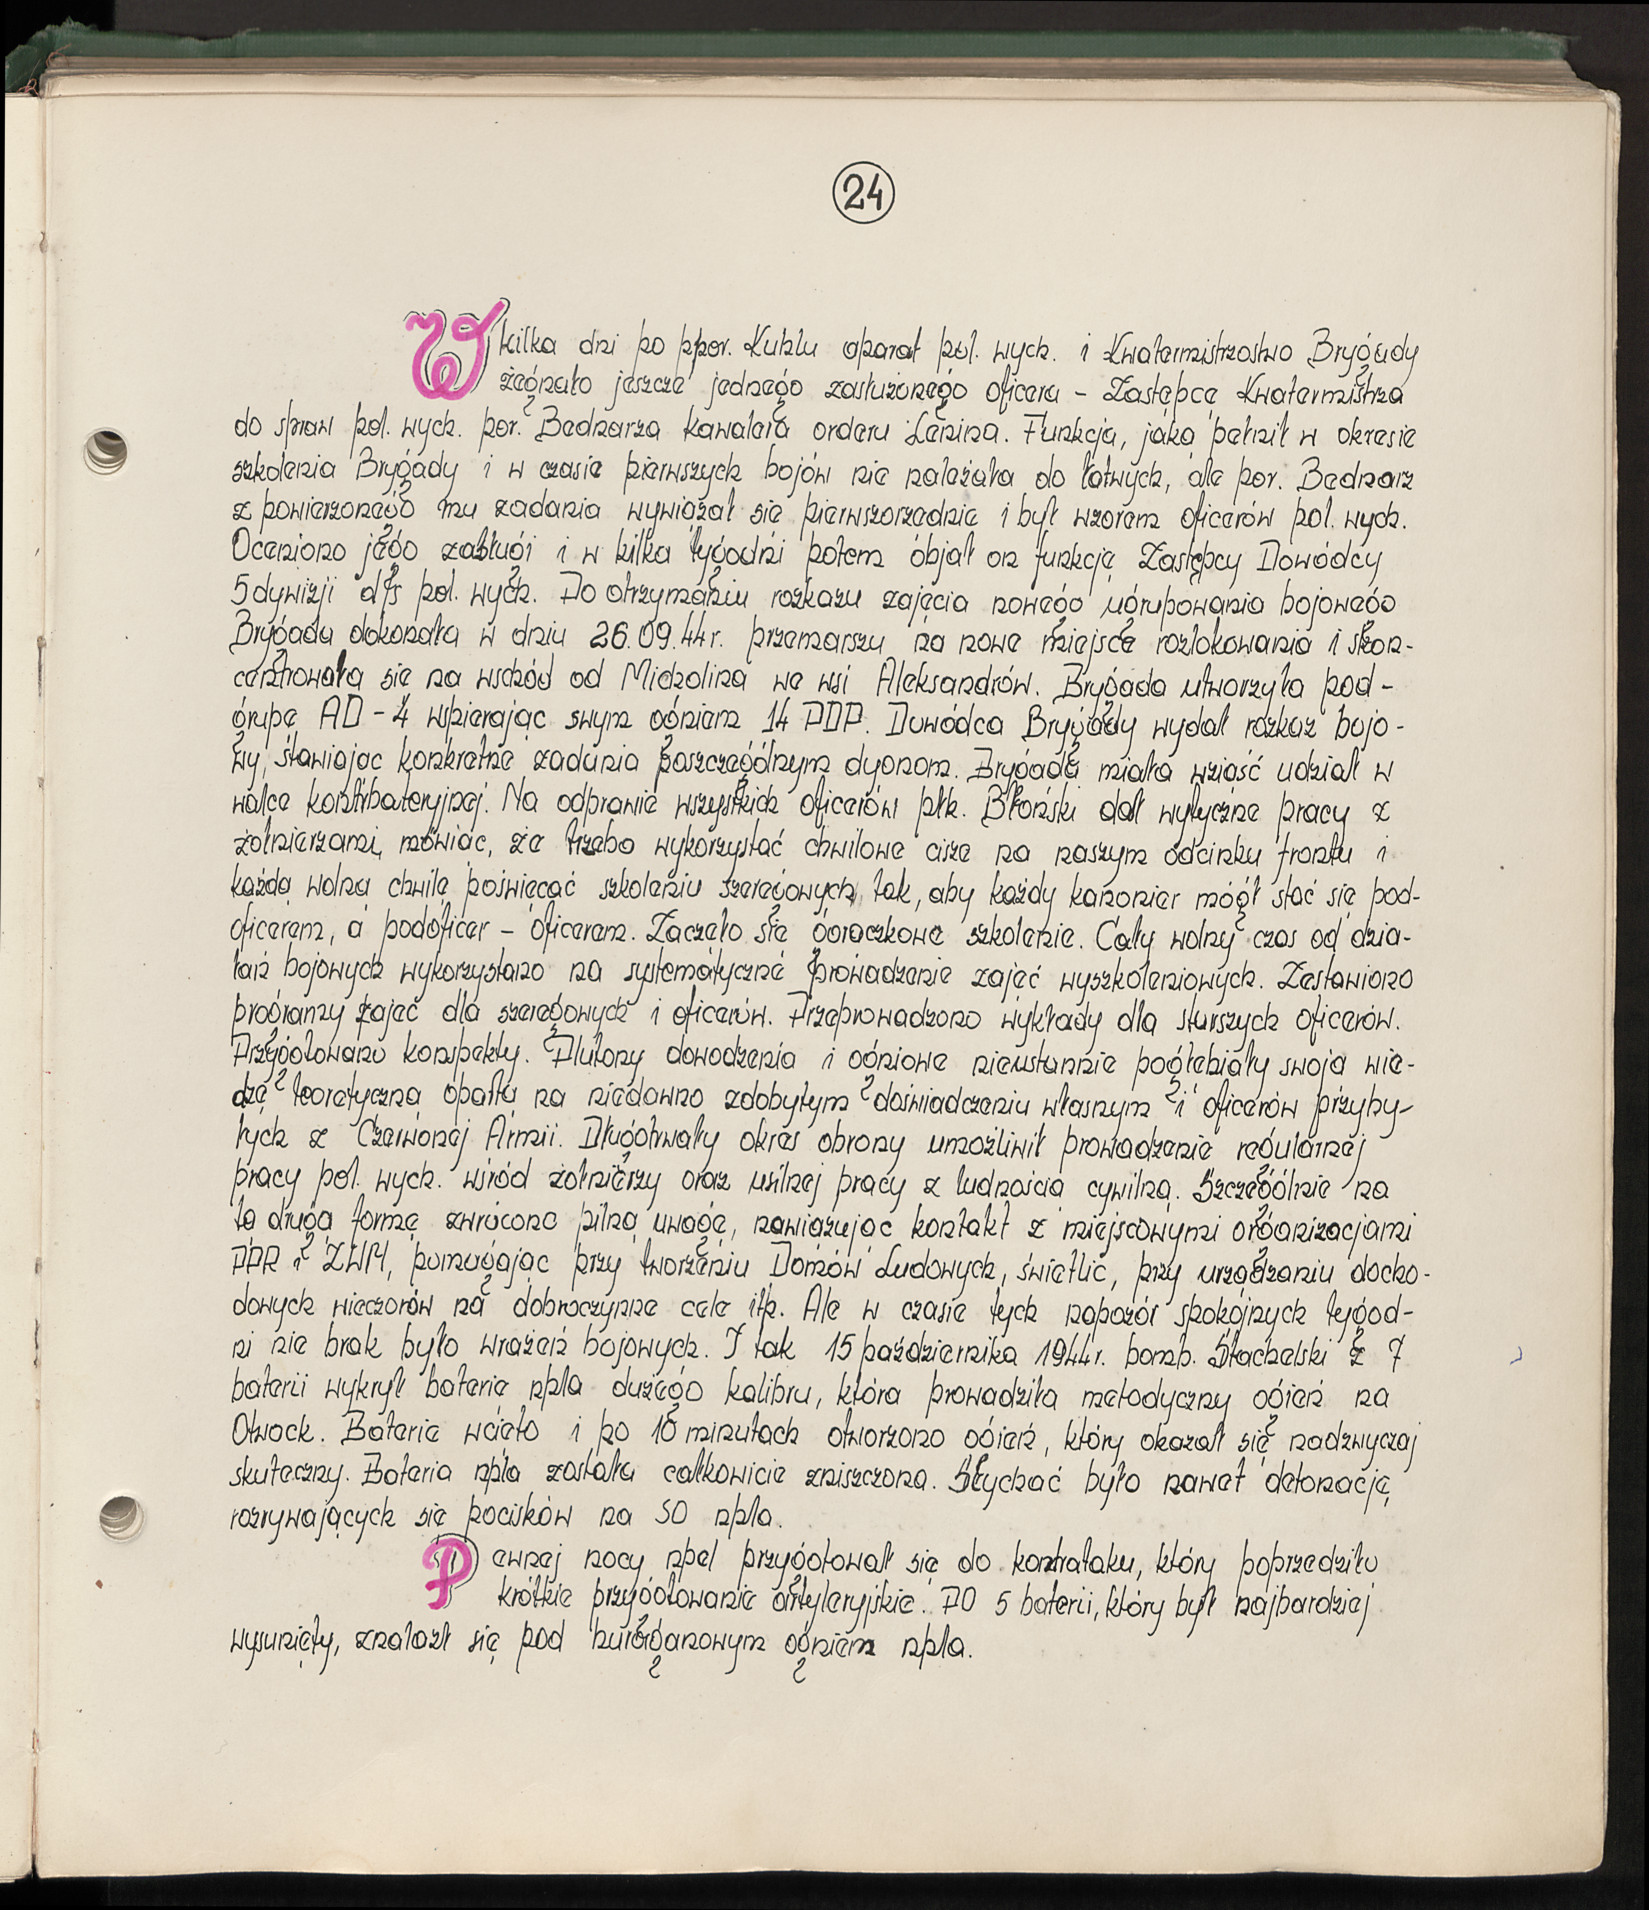 24
W kilka dni po ppor. Kublu aparat pol. wych. i Kwatermistrzostwo Brygady
żegnało jeszcze jednego zasłużonego oficera – Zastępcę Kwatermistrza
do spraw pol. wych. por. Bednarza kawalera orderu Lenina. Funkcja, jaką pełnił w okresie
szkolenia Brygady i w czasie pierwszych bojów nie należała do łatwych, ale por. Bednarz
z powierzonego mu zadania wywiązał się pierwszorzędnie i był wzorem oficerów pol. wych.
Oceniono jego zasługi i w kilka tygodni potem objął on funkcję Zastępcy Dowódcy
5 dywizji d/s pol. wych. Po otrzymaniu rozkazu zajęcia nowego ugrupowania bojowego
Brygada dokonała w dniu 26.09.44r. przemarszu na nowe miejsce rozlokowania i skon-
centrowała się na wschód od Micholina we wsi Aleksandrów. Brygada utworzyła pod-
grupę AD-4 wspierając swym ogniem 14 PDP. Dowódca Brygady wydał rozkaz bojo-
wy, stawiając konkretne zadania poszczególnym dyonom. Brygada miała wziąść udział w
walce kontrbateryjnej. Na odprawie wszystkich oficerów płk. Błoński dał wytyczne pracy z
żołnierzami, mówiąc, że trzeba wykorzystać chwilowe ciszę na naszym odcinku frontu i
każdą wolną chwilę poświęcać szkoleniu szeregowych, tak, aby każdy kanonier mógł stać się pod-
oficerem, a podoficer – oficerem. Zaczęło się gorączkowe szkolenie. Cały wolny czas od dzia-
łań bojowych wykorzystano na systematyczne prowadzenie zajęć wyszkoleniowych. Zestawiono
programy zajęć dla szeregowych i oficerów. Przeprowadzono wykłady dla starszych oficerów.
Przygotowano konspekty. Plutony dowodzenia i ogniowe nieustannie pogłębiały swoją wie-
dzę teoretyczną opartą na niedawno zdobytym doświadczeniu własnym i oficerów przyby-
łych z Czerwonej Armii. Długotrwały okres obrony umożliwił prowadzenie regularnej
pracy pol. wych. wśród żołnierzy oraz usilnej pracy z ludnością cywilną. Szczególnie na
tą drugą formę zwrócono pilną uwagę, nawiązując kontakt z miejscowymi organizacjami
PPR i ZWM, pomagając przy tworzeniu Domów Ludowych, świetlic, przy urządzaniu docho-
dowych wieczorów na dobroczynne cele itp. Ale w czasie tych napozór spokojnych tygod-
ni nie brak było wrażeń bojowych. I tak 15 października 1944r. bomb. Stachelski z 7
baterii wykrył baterię npla dużego kalibru, która prowadziła metodyczny ogień na
Otwock. Baterię wcięto i po 10 minutach otworzono ogień, który okazał się nadzwyczaj
skuteczny. Bateria npla została całkowicie zniszczona. Słychać było nawet detonację,
rozrywających się pocisków na SO npla.
Pewnej nocy npel przygotował się do kontrataku, który poprzedziło
krótkie przygotowanie artyleryjskie. PO 5 baterii, który był najbardziej
wysunięty, znalazł się pod huraganowym ogniem npla.